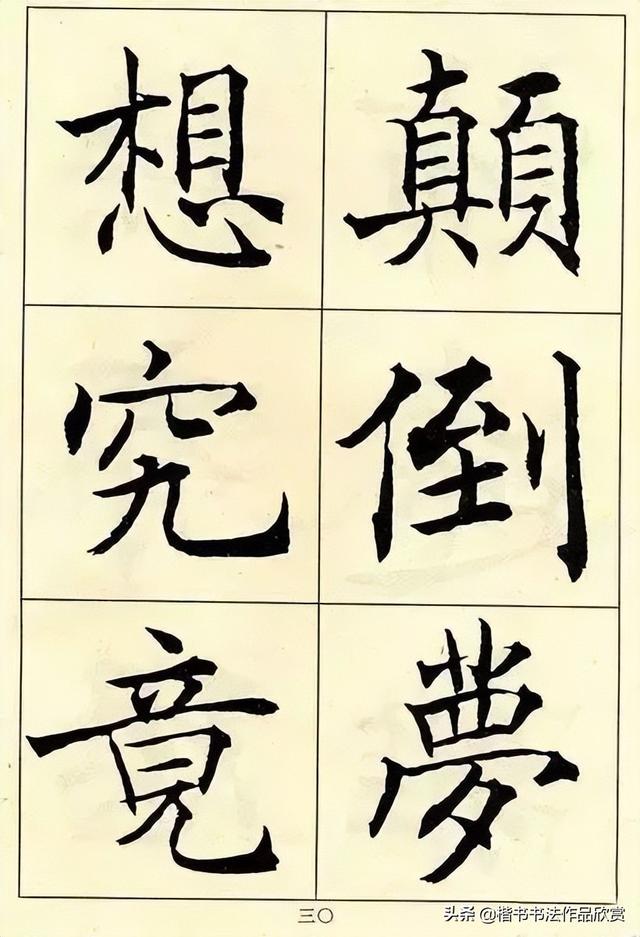 顛倒夢
想究竟
三〇
头条 @楷书书法作品欣赏